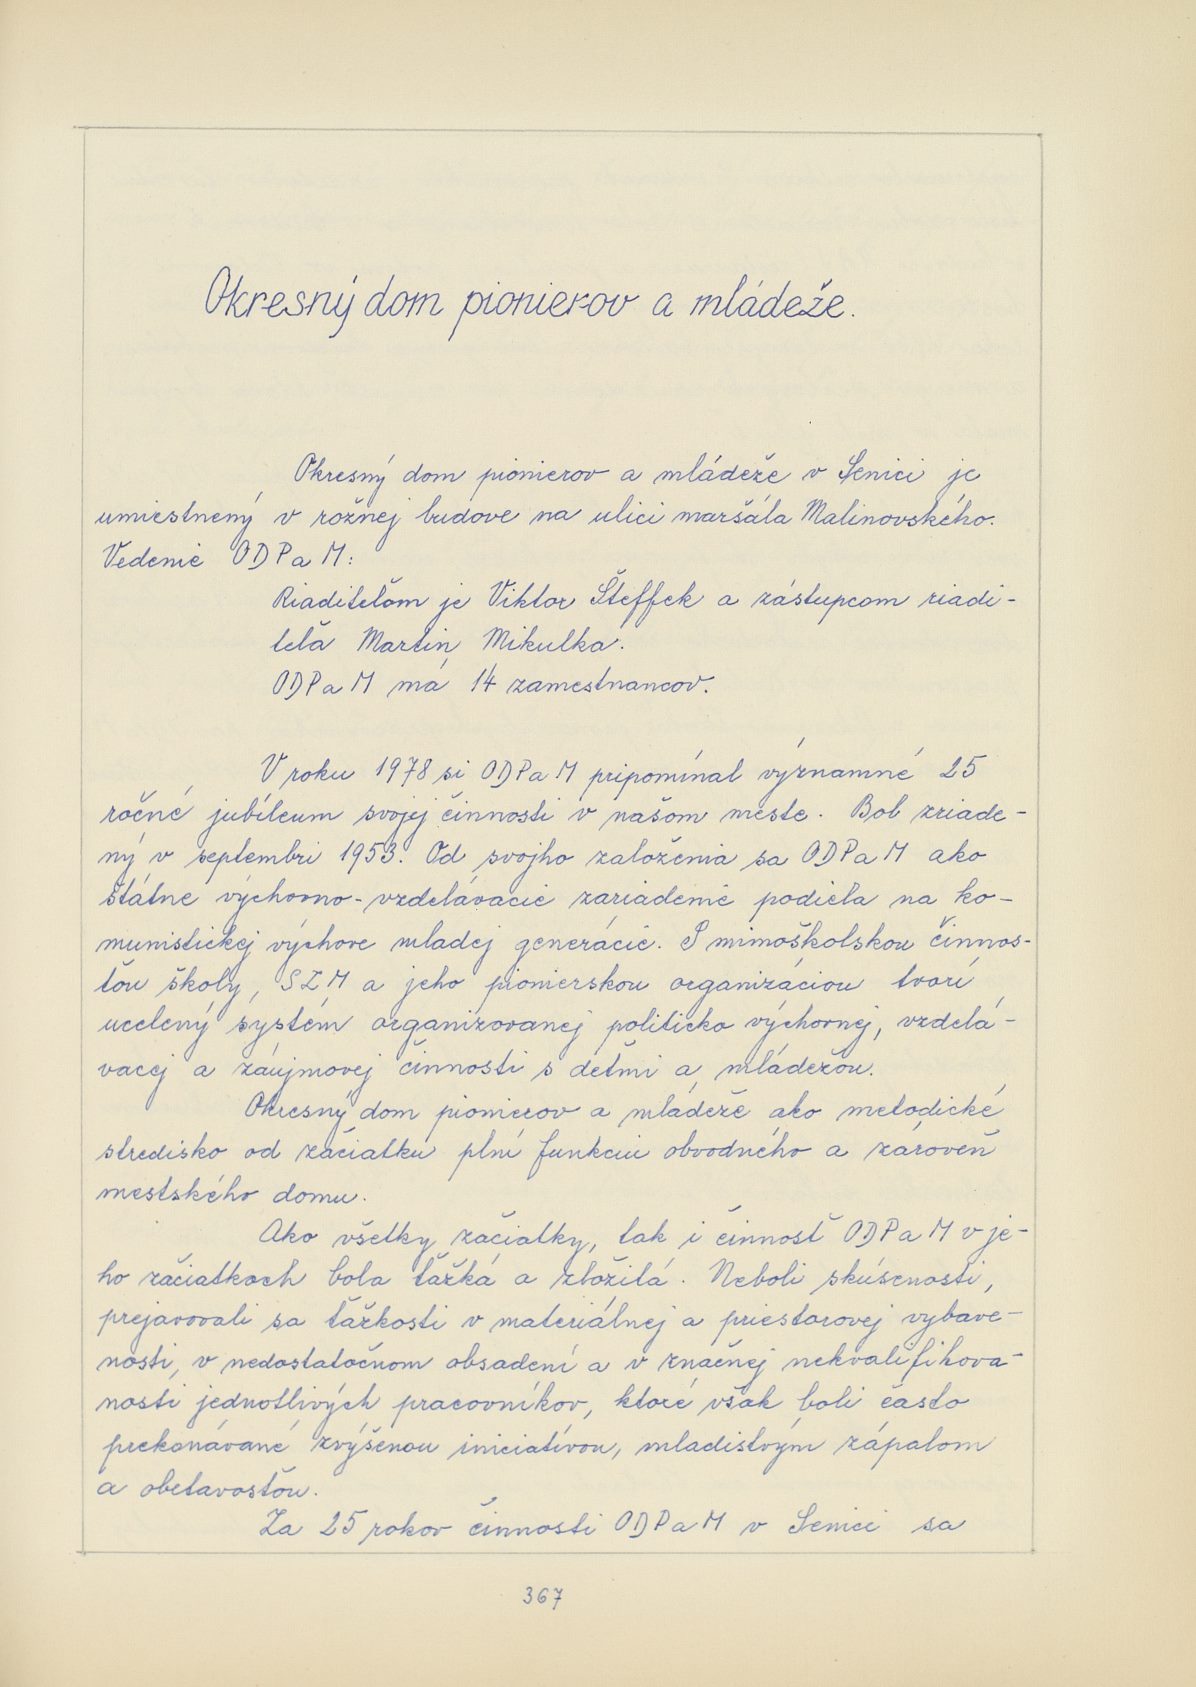 Okresný dom pionierov a mládeže.
Okresný dom pionierov a mládeže v Senici je
umiestnený v rožnej budove na ulici maršála Malinovského.
Vedenie ODPaM:
Riaditeľom je Viktor Šteffek a zástupcom riadi-
teľa Martin Mikulka.
ODPaM má 14 zamestnancov.
V roku 1978 si ODPaM pripomínal významné 25
ročné jubileum svojej činnosti v našom meste. Bol zriade-
ný v septembri 1953. Od svojho založenia sa ODPaM ako
štátne výchovno-vzdelávacie zariadenie podieľa na ko-
munistickej výchove mladej generácie. S mimoškolskou činnos-
ťou školy, SZM a jeho pionierskou organizáciou tvorí
ucelený systém organizovanej politicko výchovnej, vzdelá-
vacej a záujmovej činnosti s deťmi a mládežou.
Okresný dom pionierov a mládeže ako metodické
stredisko od začiatku plní funkciu obvodného a zároveň
mestského domu.
Ako všetky začiatky, tak i činnosť ODPaM v je-
ho začiatkoch bola ťažká a zložitá. Neboli skúsenosti,
prejavovali sa ťažkosti v materiálnej a priestorovej vybave-
nosti, v nedostatočnom obsadení a v značnej nekvalifikova-
nosti jednotlivých pracovníkov, ktoré však boli často
prekonávané zvýšenou iniciatívou, mladistvým zápalom
a obetavosťou.
Za 25 rokov činnosti ODPaM v Senici sa
367